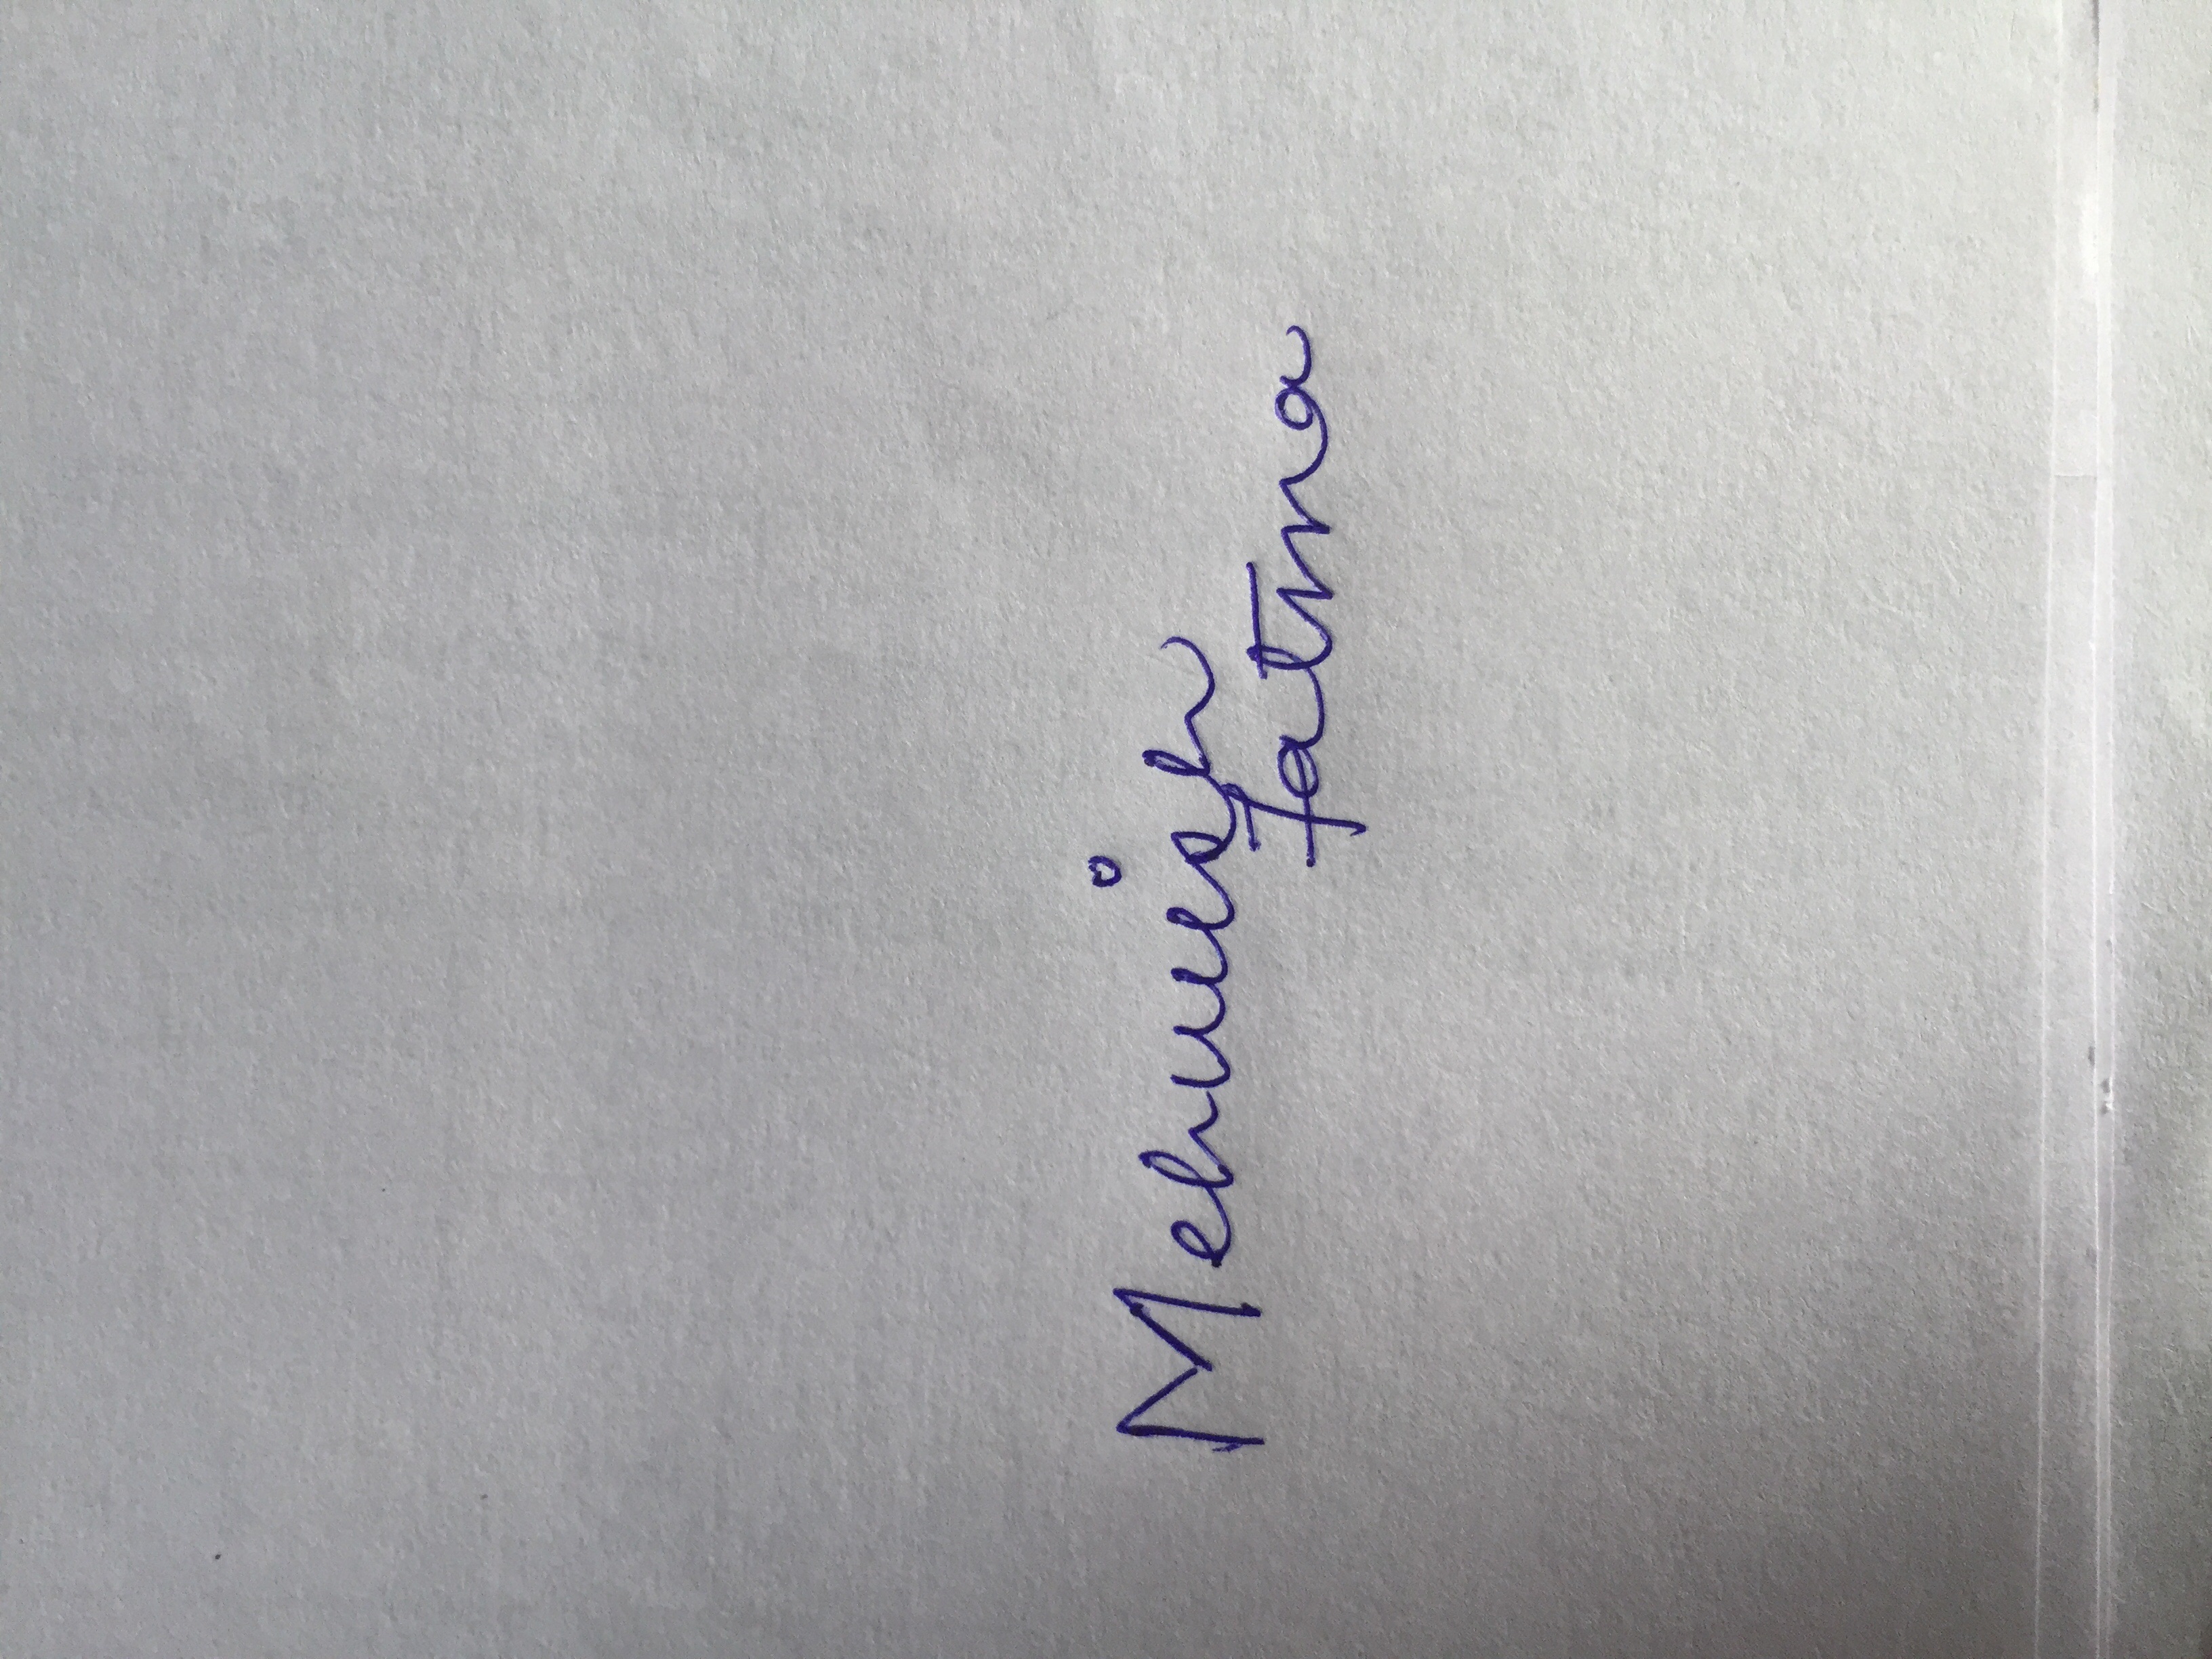 Mehwish
Fatma